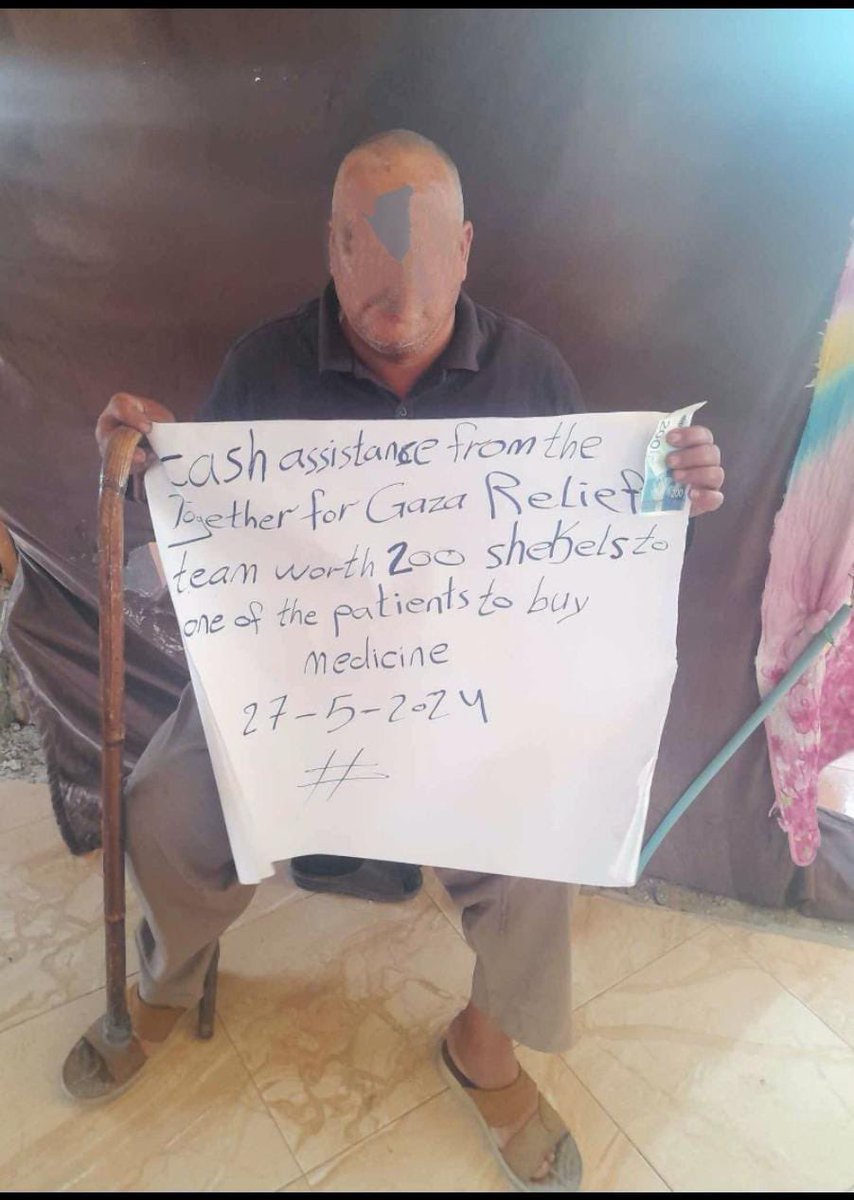 cash assistance from the
Together for Gaza Relief
team worth 200 shekels to
one of the patients to buy
medicine
27-5-2024
#
200
200